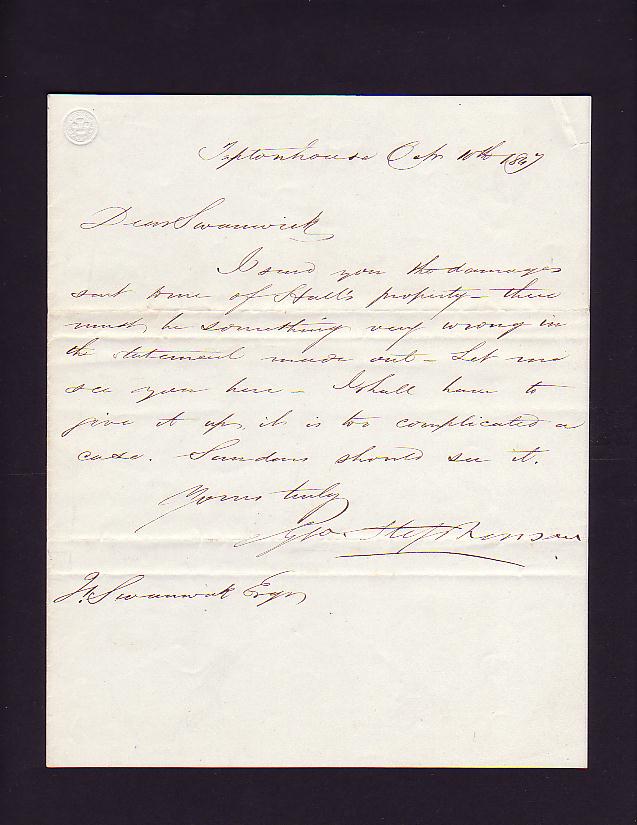 Taptonhouse Oct 10th 1847
Dear Swanwick
I send you the damages
sent to me of Hall's property - there
must be something very wrong in
the statement made out - Let me
see you here - I shall have to
give it up it is too complicated a
case. Sandars should see it.
Yours truly
Geo Stephenson
Swanwick Esqr